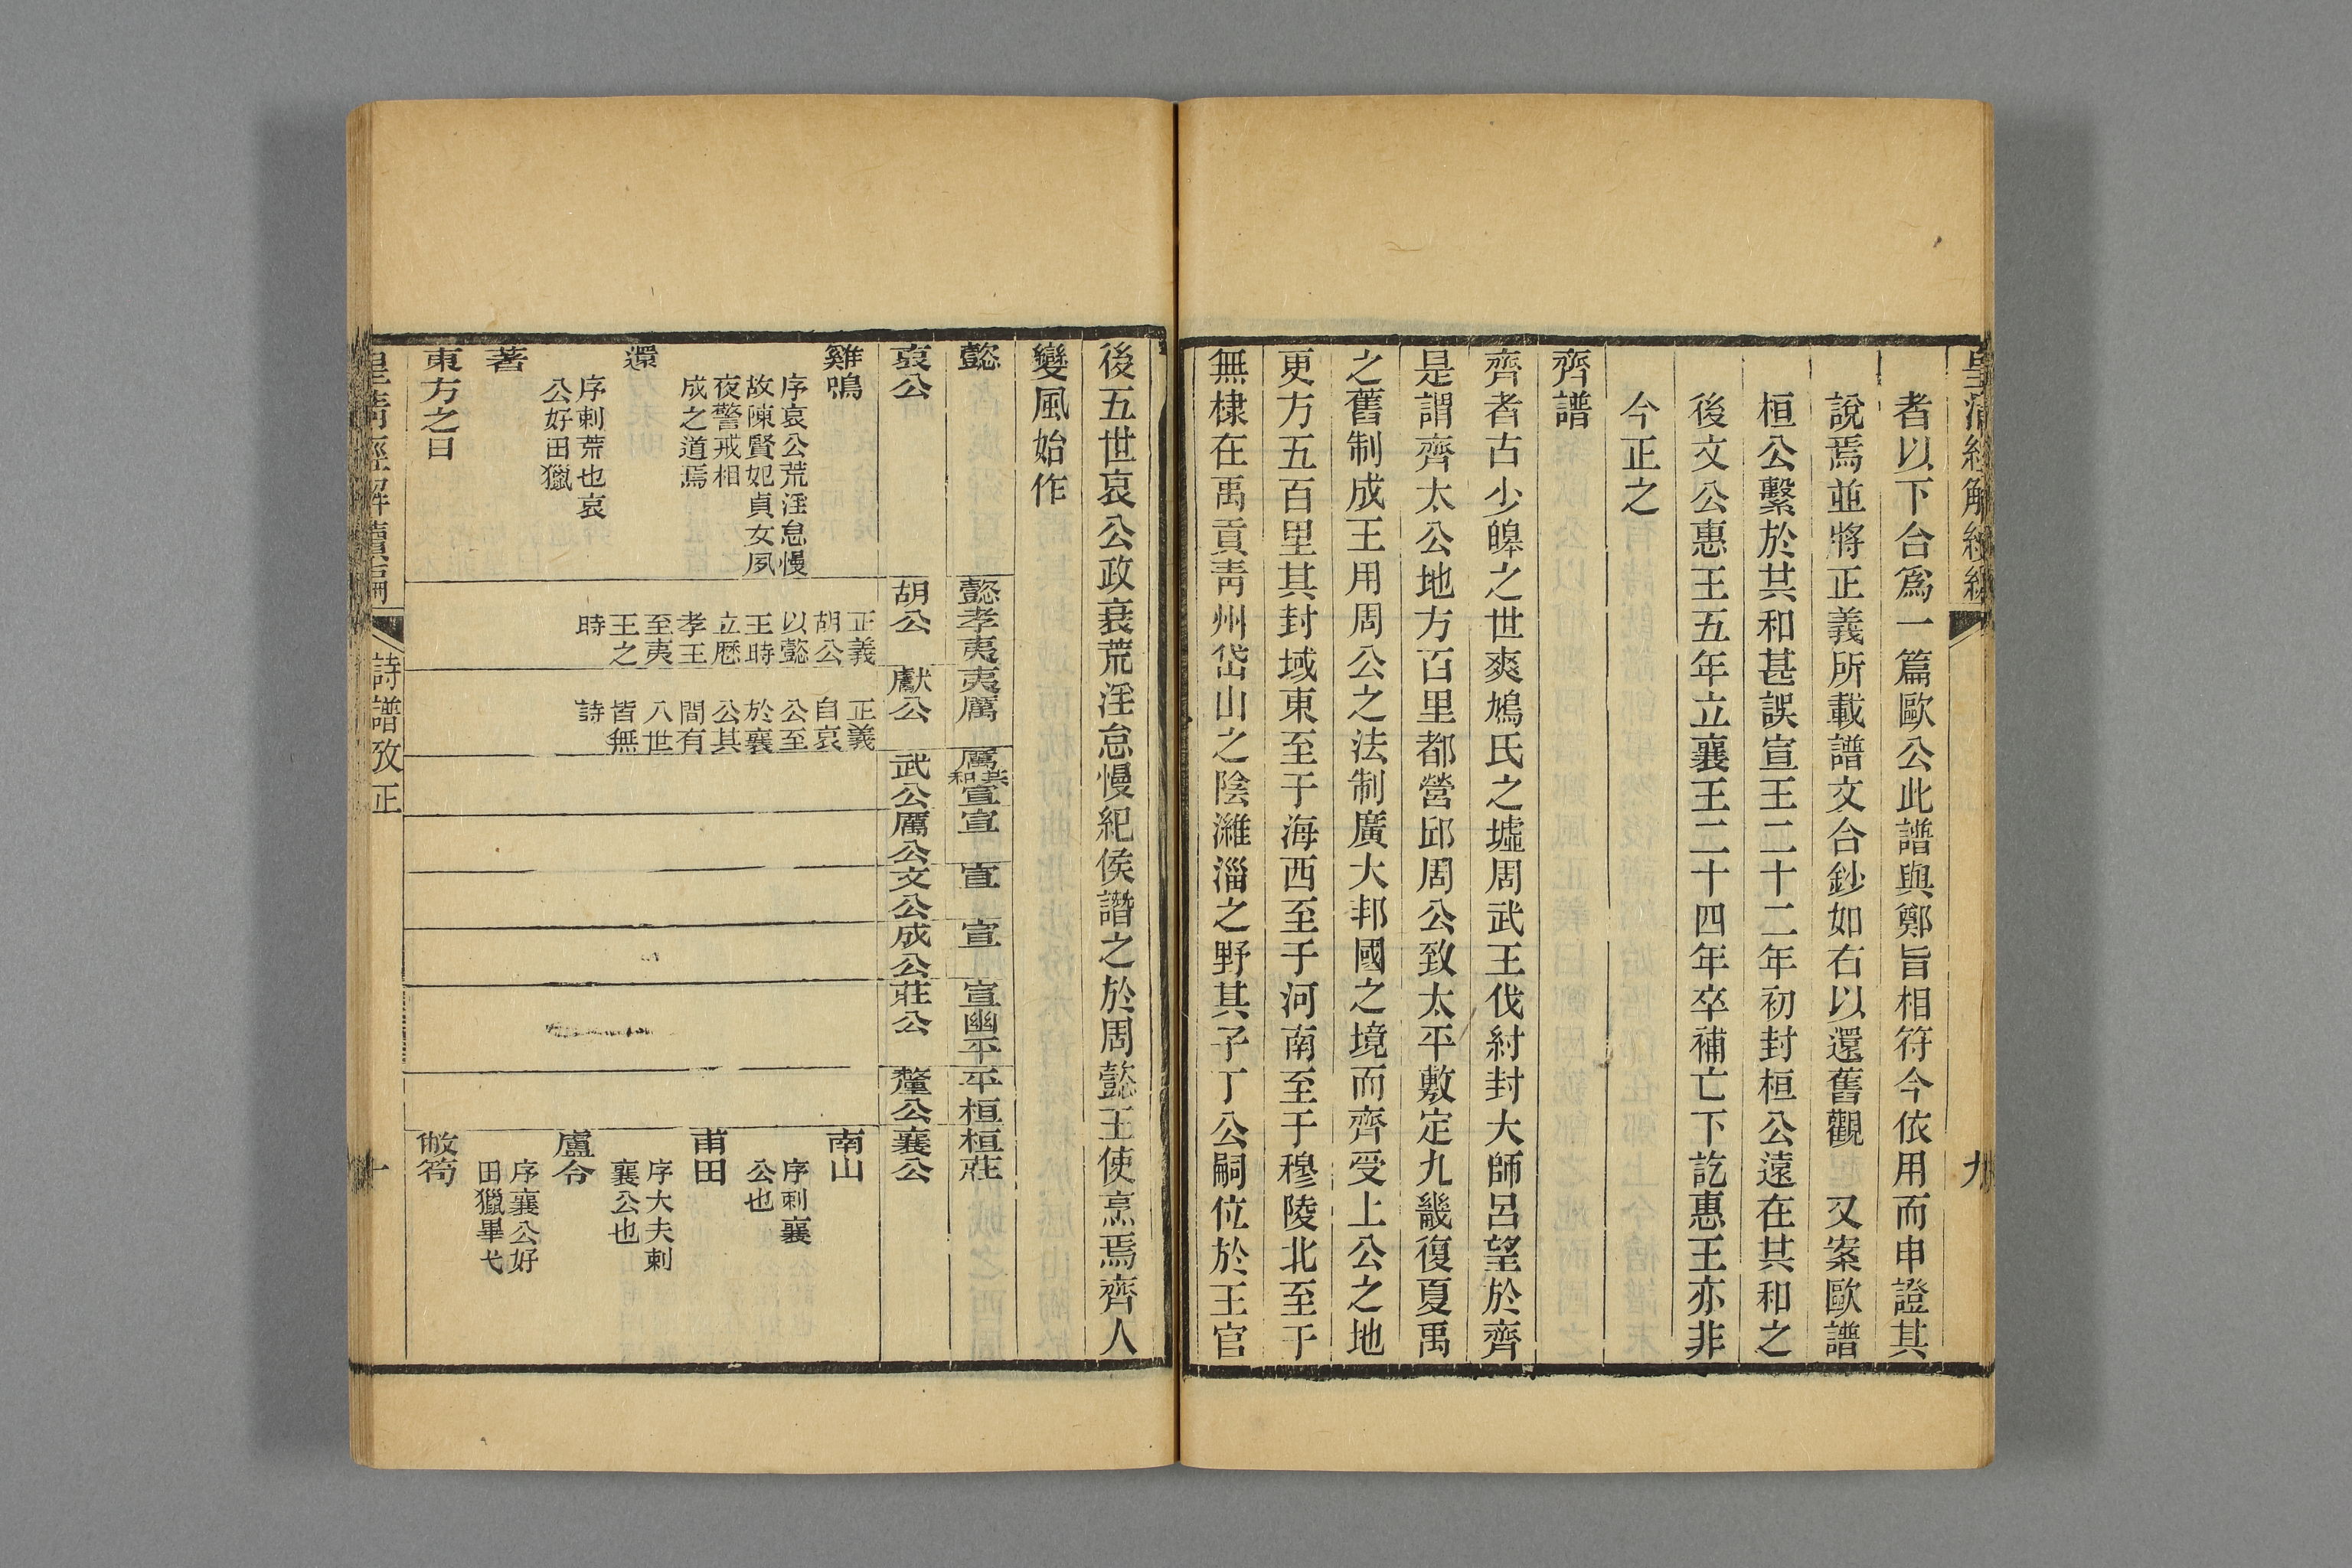 皇清經解續編
九
者以下合爲一篇歐公此譜與鄭旨相符今依用而申證其
說焉並將正義所載譜文合鈔如右以還舊觀 又案歐譜
桓公繫於共和甚誤宣王二十二年初封桓公遠在共和之
後文公惠王五年立襄王二十四年卒補亡下訖惠王亦非
今正之
齊譜
齊者古少皥之世爽鳩氏之墟周武王伐紂封大師呂望於齊
是謂齊太公地方百里都營邱周公致太平敷定九畿復夏禹
之舊制成王用周公之法制廣大邦國之境而齊受上公之地
更方五百里其封域東至于海西至于河南至于穆陵北至于
無棣在禹貢靑州岱山之陰濰淄之野其子丁公嗣位於王官
後五世哀公政衰荒淫怠慢紀侯譖之於周懿王使烹焉齊人
變風始作
懿
懿孝夷
夷厲
厲共和宣
宣
宣
宣
宣幽平
平桓
桓莊
哀公
胡公
獻公
武公
厲公
文公
成公
莊公
釐公
襄公
雞鳴
序哀公荒淫怠慢
故陳賢妃貞女夙
夜警戒相
成之道焉
還
序刺荒也哀
公好田獵
著
東方之日
正義
胡公
以懿
王時
立歷
孝王
至夷
王之
時
正義
自哀
公至
於襄
公其
間有
八世
皆無
詩
南山
序刺襄
公也
甫田
序大夫刺
襄公也
盧令
序襄公好
田獵畢弋
敝笱
皇淸經解續編
詩譜攷正
十